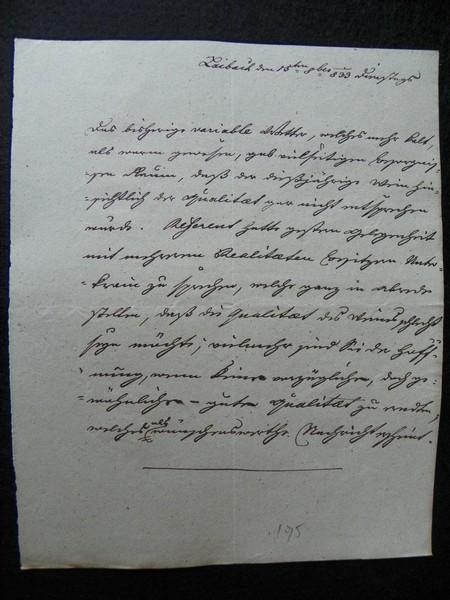 Laibach den 15ten 8ber 1833 Dienstags
Das bisherige variable Wetter, welches mehr kalt,
als warm gewesen, gab vielseitigen Besorgnis-
sen Raum, daß der dießjährige Wein hin-
sichtlich der Qualitaet gar nicht entsprechen
würde. Referent hatte gestern Gelegenheit
mit mehreren Realitäten Besitzern Unter-
krain zu sprechen, welche ganz in Abrede
stellen, daß die Qualitaet des Weins schlecht
seyn möchte; vielmehr sind Sie der Hoff-
nung, wenn keine vorzügliche, doch ge-
wöhnliche - gute Qualitaet zu
welches als wünschenswerthe Nachricht erscheint.
175